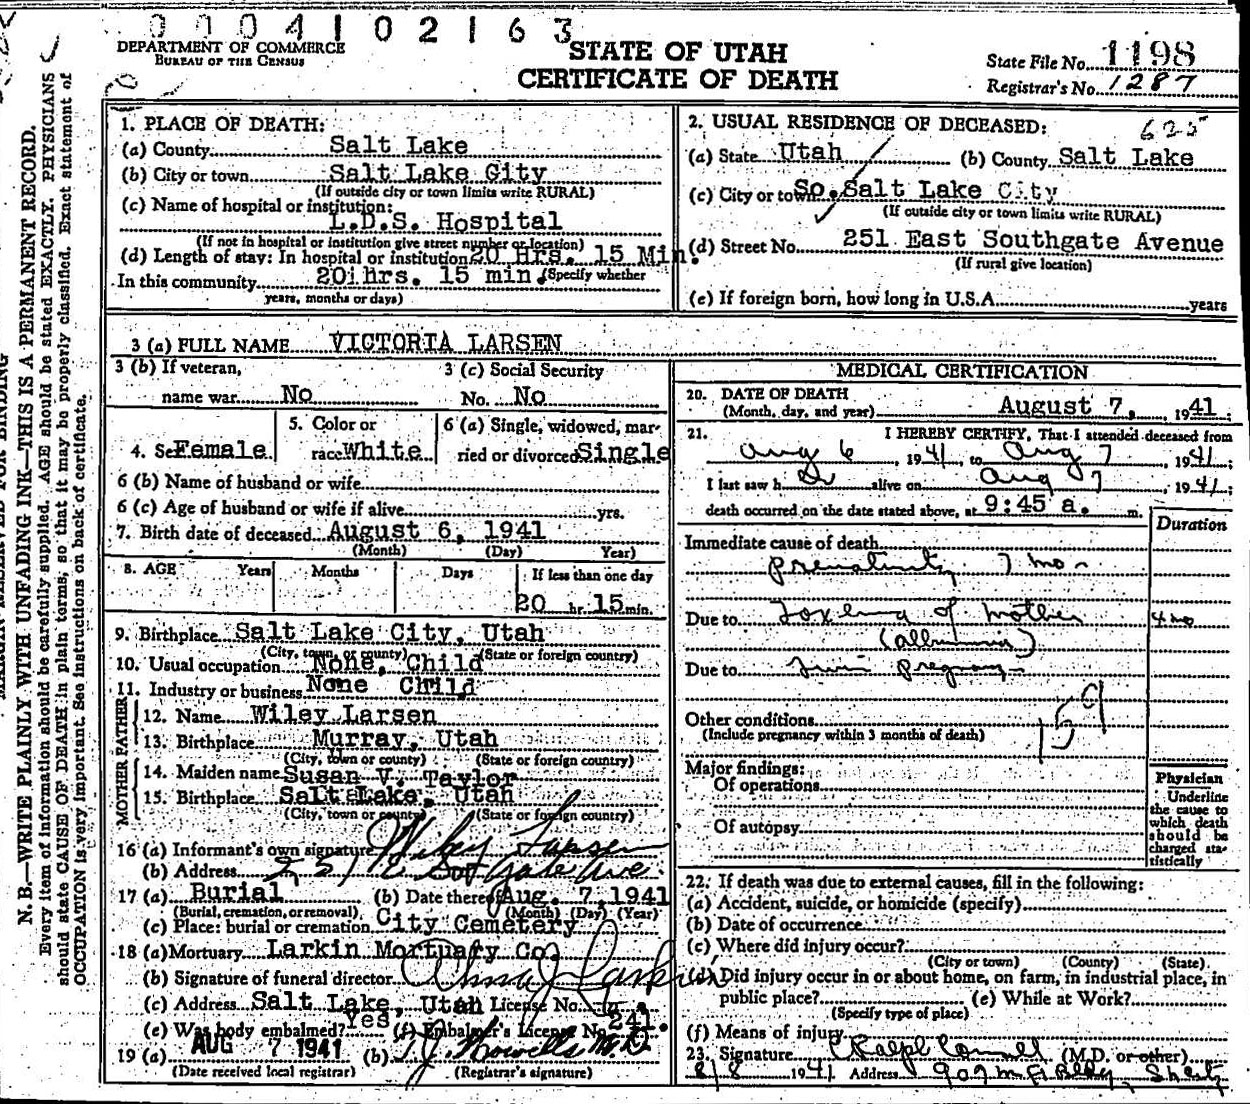 0004102163
DEPARTMENT OF COMMERCE
BUREAU OF THE CENSUS
STATE OF UTAH
CERTIFICATE OF DEATH
State File No. 1198
Registrar's No. 1287
N. B.—WRITE PLAINLY WITH UNFADING INK—THIS IS A PERMANENT RECORD.
Every item of information should be carefully supplied. AGE should be stated EXACTLY. PHYSICIANS
should state CAUSE OF DEATH in plain terms, so that it may be properly classified. Exact statement of
OCCUPATION is very important. See instructions on back of certificate.
1. PLACE OF DEATH:
(a) County Salt Lake
(b) City or town Salt Lake City
(If outside city or town limits write RURAL)
(c) Name of hospital or institution:
L.D.S. Hospital
(If not in hospital or institution give street number or location)
(d) Length of stay: In hospital or institution 20 Hrs. 15 Min.
In this community 20 hrs. 15 min. (Specify whether
years, months or days)
2. USUAL RESIDENCE OF DECEASED: 625
(a) State Utah (b) County Salt Lake
(c) City or town So. Salt Lake City
(If outside city or town limits write RURAL)
(d) Street No. 251 East Southgate Avenue
(If rural give location)
(e) If foreign born, how long in U.S.A. years
3 (a) FULL NAME VICTORIA LARSEN
3 (b) If veteran, 3 (c) Social Security
name war No No. No
4. Sex Female 5. Color or race White 6 (a) Single, widowed, married or divorced Single
6 (b) Name of husband or wife
6 (c) Age of husband or wife if alive yrs.
7. Birth date of deceased August 6, 1941
(Month) (Day) Year)
8. AGE Years Months Days If less than one day
20 hr. 15 min.
9. Birthplace Salt Lake City, Utah
(City, town, or county) (State or foreign country)
10. Usual occupation None, Child
11. Industry or business None Child
FATHER
12. Name Wiley Larsen
13. Birthplace Murray, Utah
(City, town or county) (State or foreign country)
MOTHER
14. Maiden name Susan V. Taylor
15. Birthplace Salt Lake, Utah
(City, town or county) (State or foreign country)
16 (a) Informant's own signature Wiley Larsen
(b) Address 251 E So Gate Ave.
17 (a) Burial (b) Date thereof Aug. 7, 1941
(Burial, cremation, or removal) (Month) (Day) (Year)
(c) Place: burial or cremation City Cemetery
18 (a) Mortuary Larkin Mortuary Co.
(b) Signature of funeral director
(c) Address Salt Lake, Utah License No.
(e) Was body embalmed? Yes (f) Embalmer's License No. 241.
19 (a) AUG 7 1941 (b) M.D.
(Date received local registrar) (Registrar's signature)
MEDICAL CERTIFICATION
20. DATE OF DEATH
(Month, day, and year) August 7, 1941;
21. I HEREBY CERTIFY, That I attended deceased from
Aug 6, 1941, to Aug 7, 1941;
I last saw h er alive on Aug 7, 1941;
death occurred on the date stated above, at 9:45 a. m.
Duration
Immediate cause of death
Prematurity 7 mo
Due to Toxemia of mother 4 mo
Due to Twin pregnancy
159
Other conditions
(Include pregnancy within 3 months of death)
Major findings:
Of operations
Of autopsy
Physician
Underline
the cause to
which death
should be
charged sta-
tistically
22. If death was due to external causes, fill in the following:
(a) Accident, suicide, or homicide (specify)
(b) Date of occurrence
(c) Where did injury occur?
(City or town) (County) (State)
(d) Did injury occur in or about home, on farm, in industrial place, in
public place? (e) While at Work?
(Specify type of place)
(f) Means of injury
23. Signature Ralph (M.D. or other)
8/8 1941 Address 909